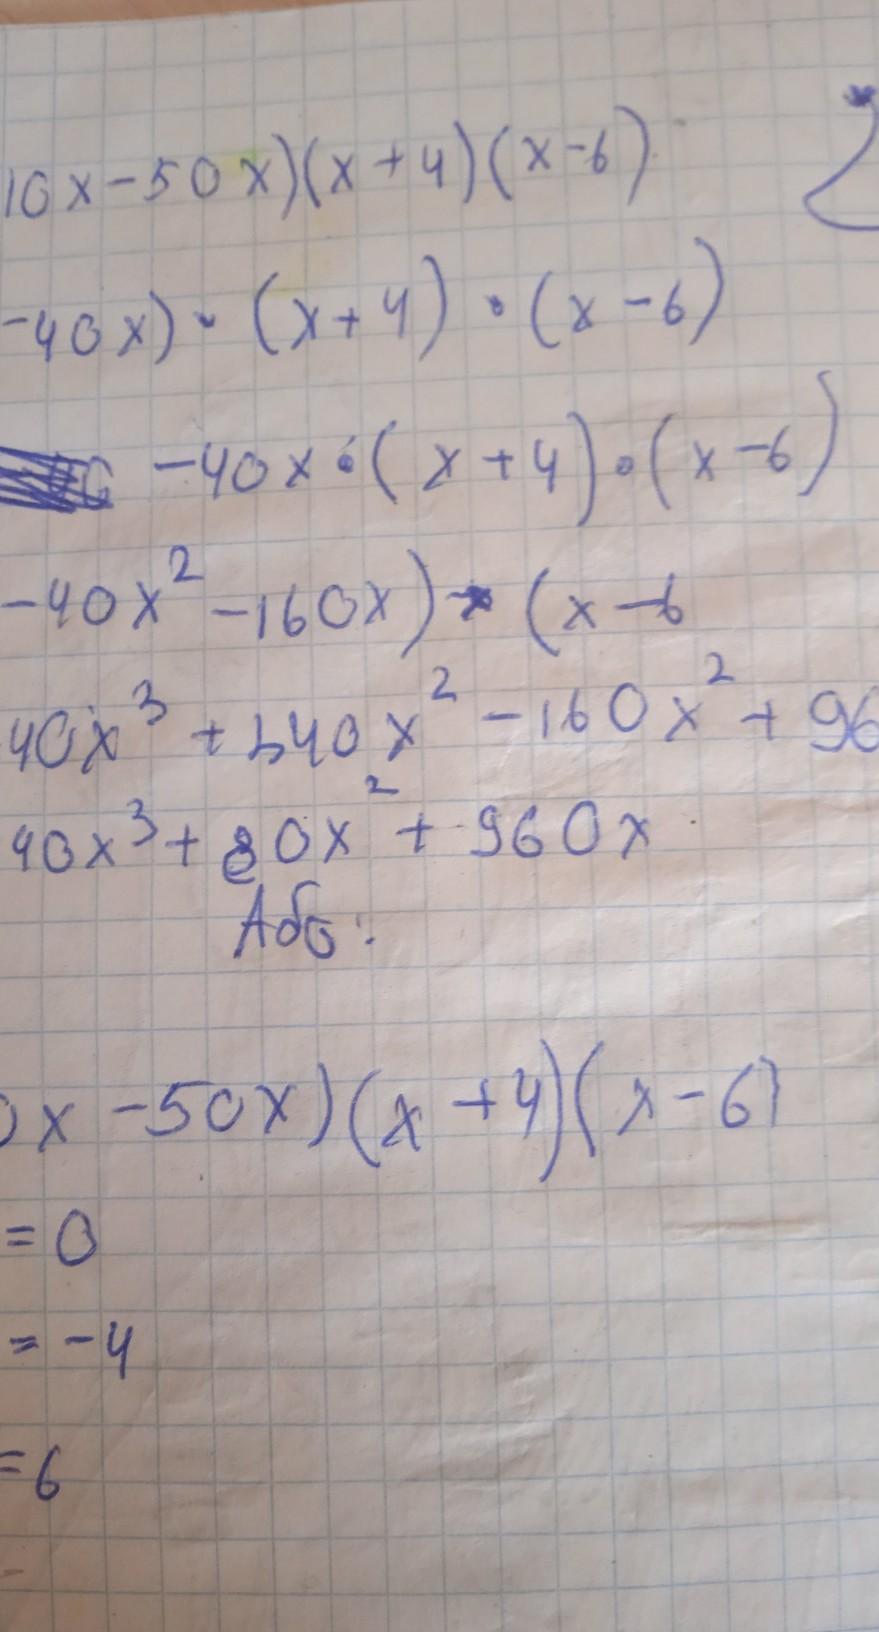 10x-50x)(x+4)(x-6)
-40x)·(x+4)·(x-6)
-40x·(x+4)·(x-6)
-40x²-160x)·(x-6
40x³+240x²-160x²+96
40x³+80x²+960x
Або:
0x-50x)(x+4)(x-6)
=0
=-4
=6